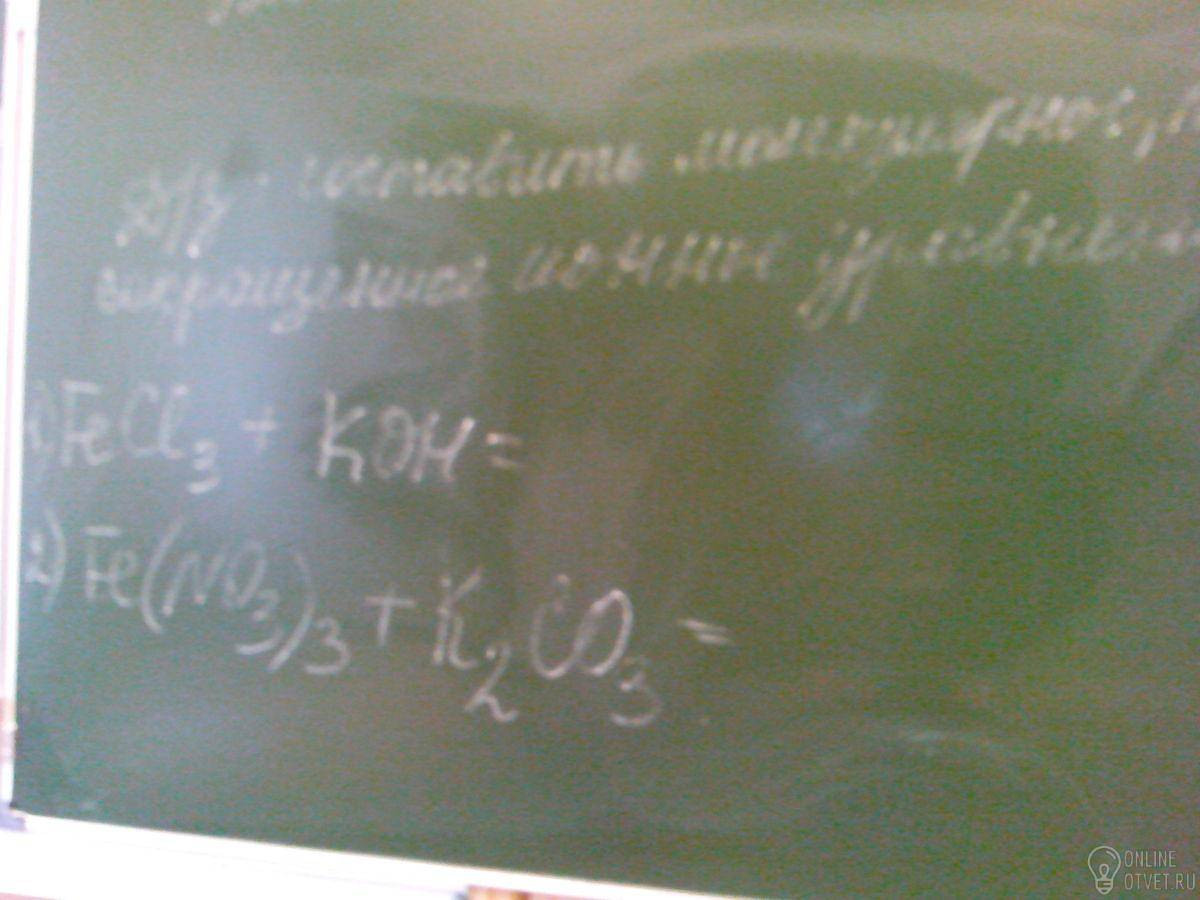 Д/з. составить молекулярное,
сокращенное ионные уравнения
1) FeCl₃ + KOH =
2) Fe(NO₃)₃ + K₂CO₃ =
ONLINE
OTVET.RU